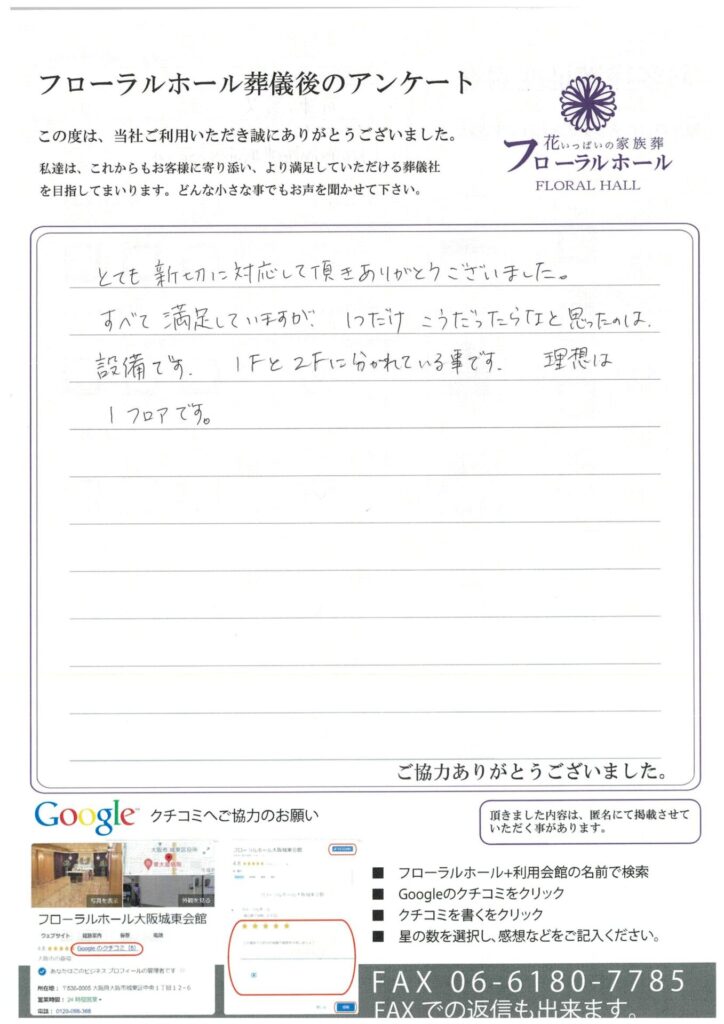 フローラルホール葬儀後のアンケート
この度は、当社ご利用いただき誠にありがとうございました。
私達は、これからもお客様に寄り添い、より満足していただける葬儀社
を目指してまいります。どんな小さな事でもお声を聞かせて下さい。
花いっぱいの家族葬
フローラルホール
FLORAL HALL
とても 新切に対応して頂きありがとうございました。
すべて 満足していますが、 1つだけ こうだったらなと思ったのは、
設備です。 1Fと2Fに分かれている事です。 理想は
1フロアです。
ご協力ありがとうございました。
Google クチコミへご協力のお願い
頂きました内容は、匿名にて掲載させて
いただく事があります。
写真を表示
外観を見る
フローラルホール大阪城東会館
ウェブサイト 経路案内 保存 電話
Google のクチコミ
あなたはこのビジネス プロフィールの管理者です
所在地:
営業時間: 24 時間営業
電話:
フローラルホール大阪城東会館
■ フローラルホール+利用会館の名前で検索
■ Googleのクチコミをクリック
■ クチコミを書くをクリック
■ 星の数を選択し、感想などをご記入ください。
FAX 06-6180-7785
FAX での返信も出来ます。